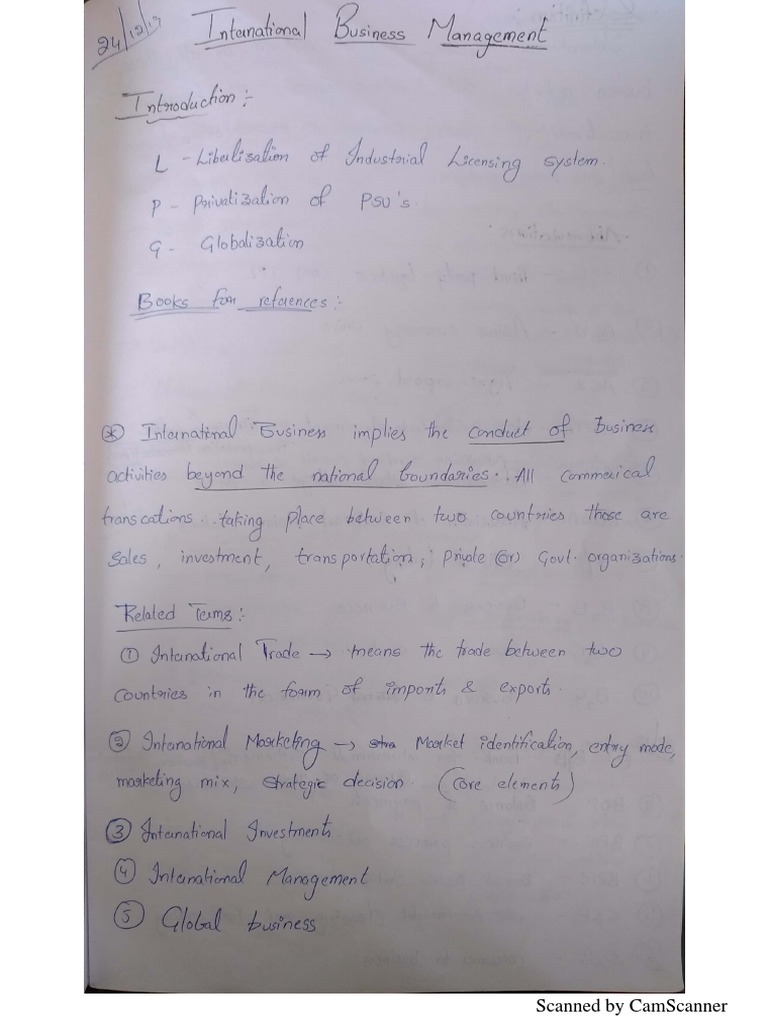 24/12/19
International Business Management
Introduction :-
L - Liberlisation of Industrial Licensing system.
P - Privatization of PSU's.
G - Globalization
Books for refernces :-
* International Business implies the conduct of Business
activities beyond the national boundaries. All commerical
transcations taking place between two countries those are
Sales, investment, transportation, private (or) Govt. organizations.
Related Terms :-
① International Trade → means the trade between two
countries in the form of imports & exports.
② International Marketing → Market identification, entry mode,
marketing mix, strategic decision (core elements)
③ International Investments
④ International Management
⑤ Global business
Scanned by CamScanner